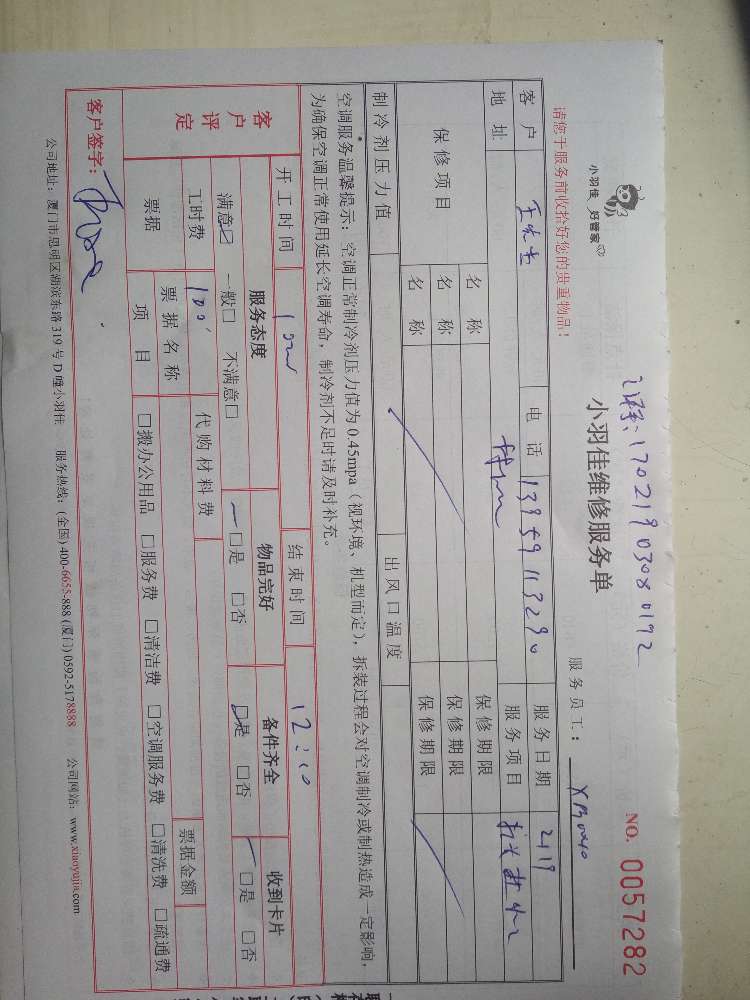 小羽佳 好管家
17021903080192
小羽佳维修服务单
NO. 0057282
请您于服务前收拾好您的贵重物品！
服务员工：
客户 王先生 电话 13959113290 服务日期 2119
地址 服务项目
保修项目 名称 保修期限
名称 保修期限
名称 保修期限
制冷剂压力值 出风口温度
空调服务温馨提示：空调正常制冷剂压力值为0.45mpa（视环境、机型而定），拆装过程会对空调制冷或制热造成一定影响，
为确保空调正常使用延长空调寿命，制冷剂不足时请及时补充。
开工时间 结束时间 12:10
客户评定 服务态度 物品完好 备件齐全 收到卡片
满意☑ 一般□ 不满意□ □是 □否 ☑是 □否 □是 □否
工时费 100 代购材料费
票据 票据名称 票据金额
项目 □搬办公用品 □服务费 □清洁费 □空调服务费 □清洗费 □疏通费
客户签字：
公司地址：厦门市思明区湖滨东路319号D幢小羽佳 服务热线：(全国) 400-6655-888 (厦门) 0592-5178888 公司网站：www.xiaoyujia.com